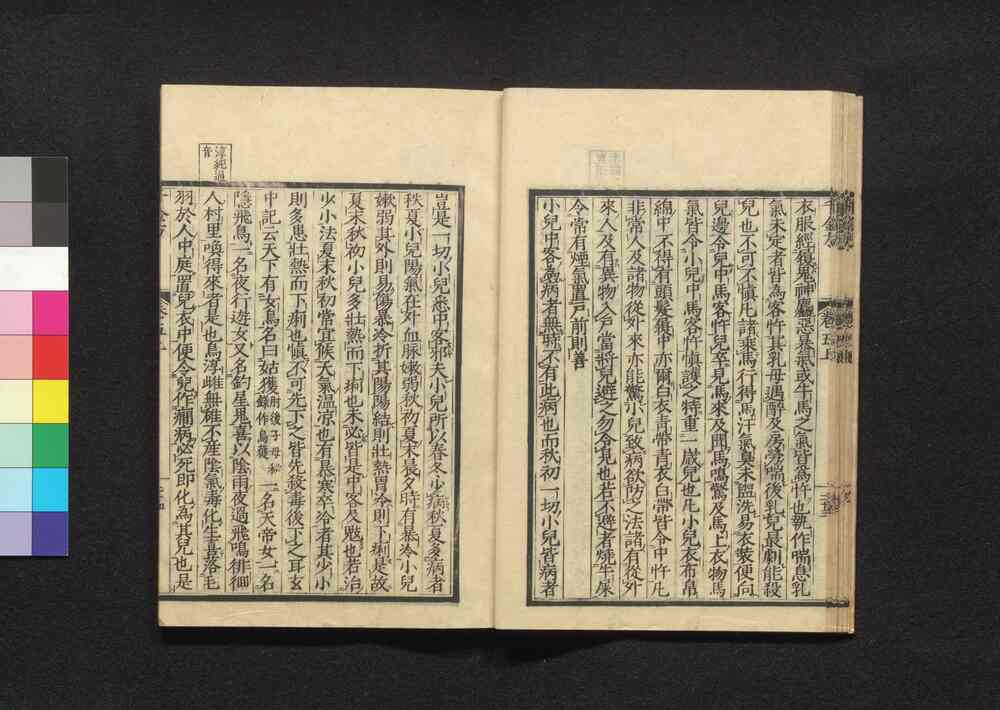 衣服經獲鬼神麤惡暴氣或牛馬之氣皆爲忤也執作喘息乳
氣未定者皆為客忤其乳母遇醉及房勞喘後乳兒最劇能殺
兒也不可不慎凡諸乘馬行得馬汗氣臭未盥洗易衣裝便向
兒邊令兒中馬客忤兒卒見馬來及聞馬鳴驚及馬上衣物馬
氣皆令小兒中馬客忤慎護之特重一歲兒也凡小兒衣布帛
綿中不得有頭髮履中亦爾白衣青帶青衣白帶皆令中忤凡
非常人及諸物從外來亦能驚小兒致病欲防之法諸有從外
來人及有異物入戶當將兒避之勿令見也若不避者燒牛屎
令常有煙氣置戶前則善
小兒中客為病者無時不有此病也而秋初一切小兒皆病者
豈是一切小兒悉中客邪夫小兒所以春冬少病秋夏多病者
秋夏小兒陽氣在外血脉嫩弱秋初夏末晨夕時有暴冷小兒
嫩弱其外則易傷暴冷折其陽陽結則壯熱胃冷則下痢是故
夏末秋初小兒多壯熱而下痢也未必皆是中客及魃也若治
少小法夏末秋初常宜候天氣温涼也有暴寒卒冷者其少小
則多患壯熱而下痢也慎不可先下之皆先殺毒後下之耳玄
中記云天下有女鳥名曰姑獲肘後子母秘錄作烏獲一名天帝女一名
隱飛鳥一名夜行遊女又名釣星鬼喜以陰雨夜過飛鳴徘徊
人村里喚得來者是也鳥淳雌無雄不産陰氣毒化生喜落毛
羽於人中庭置兒衣中便令兒作癇病必死即化為其兒也是
淳純過
音
卷五上